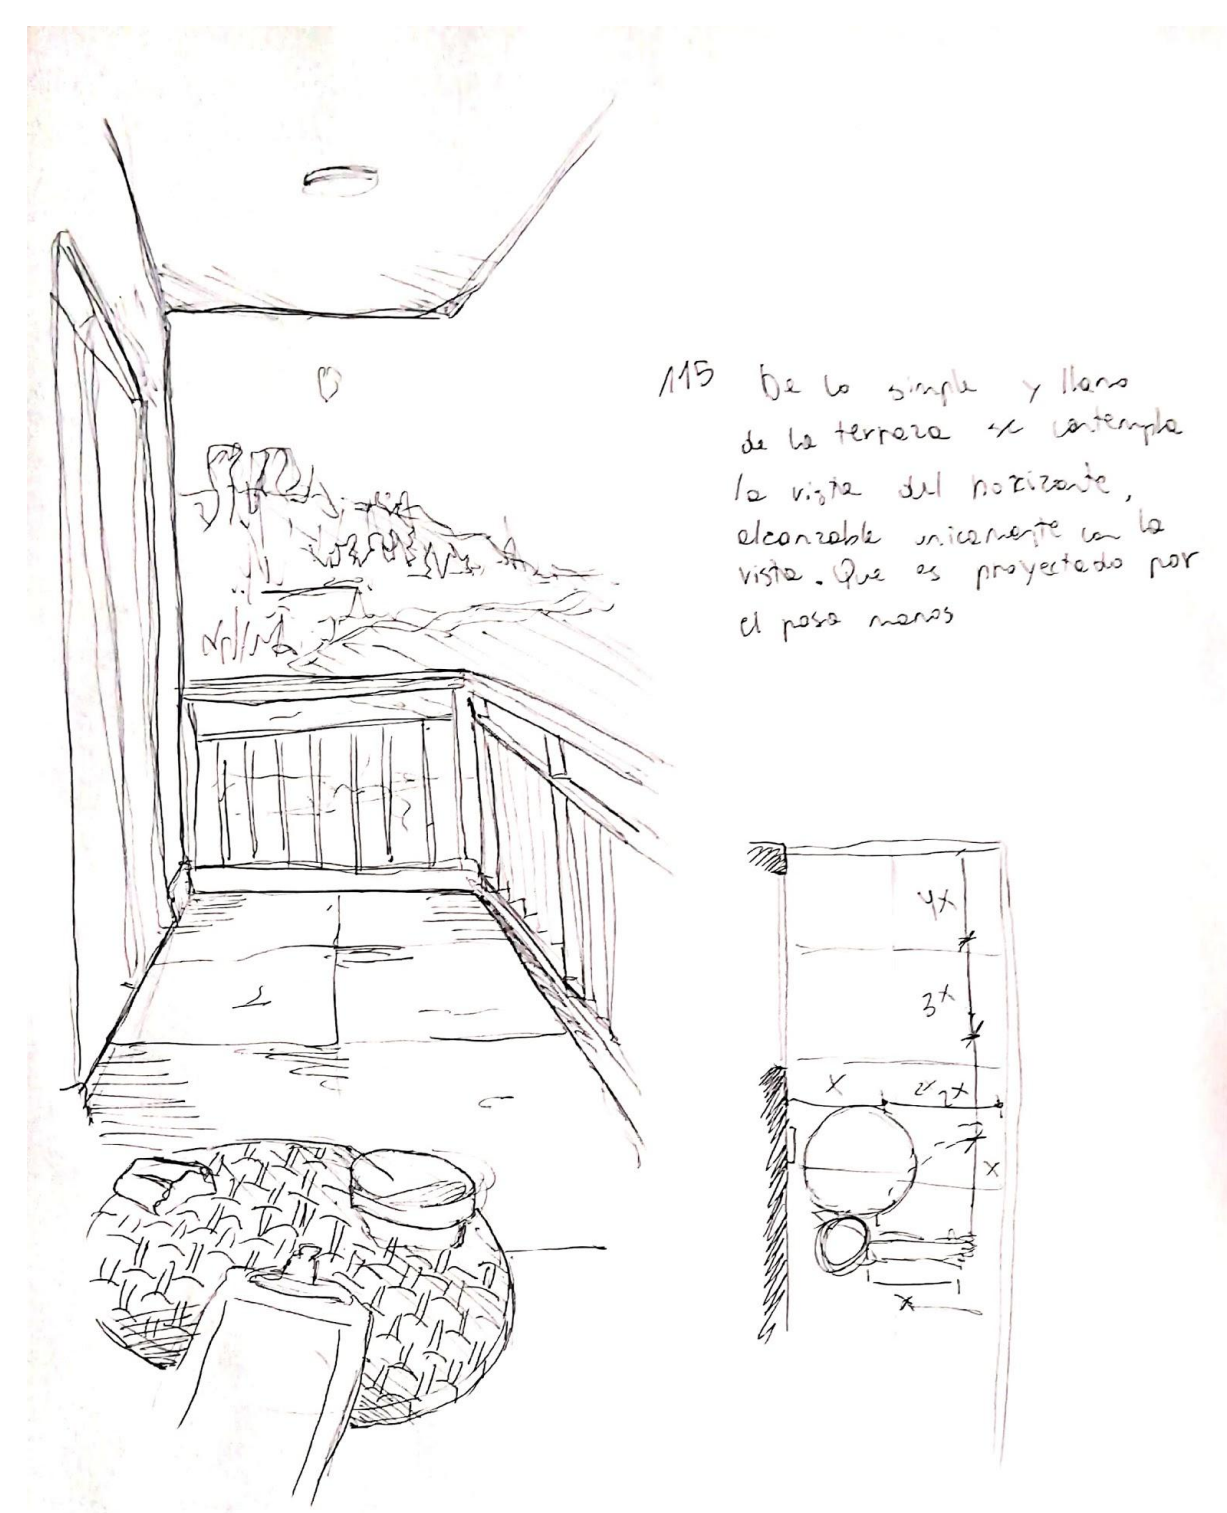 115 De lo simple y llano
de la terraza se contempla
la vista del horizonte,
alcanzable unicamente con la
vista. Que es proyectado por
el pasa manos
4x
3x
x 2x
x
x